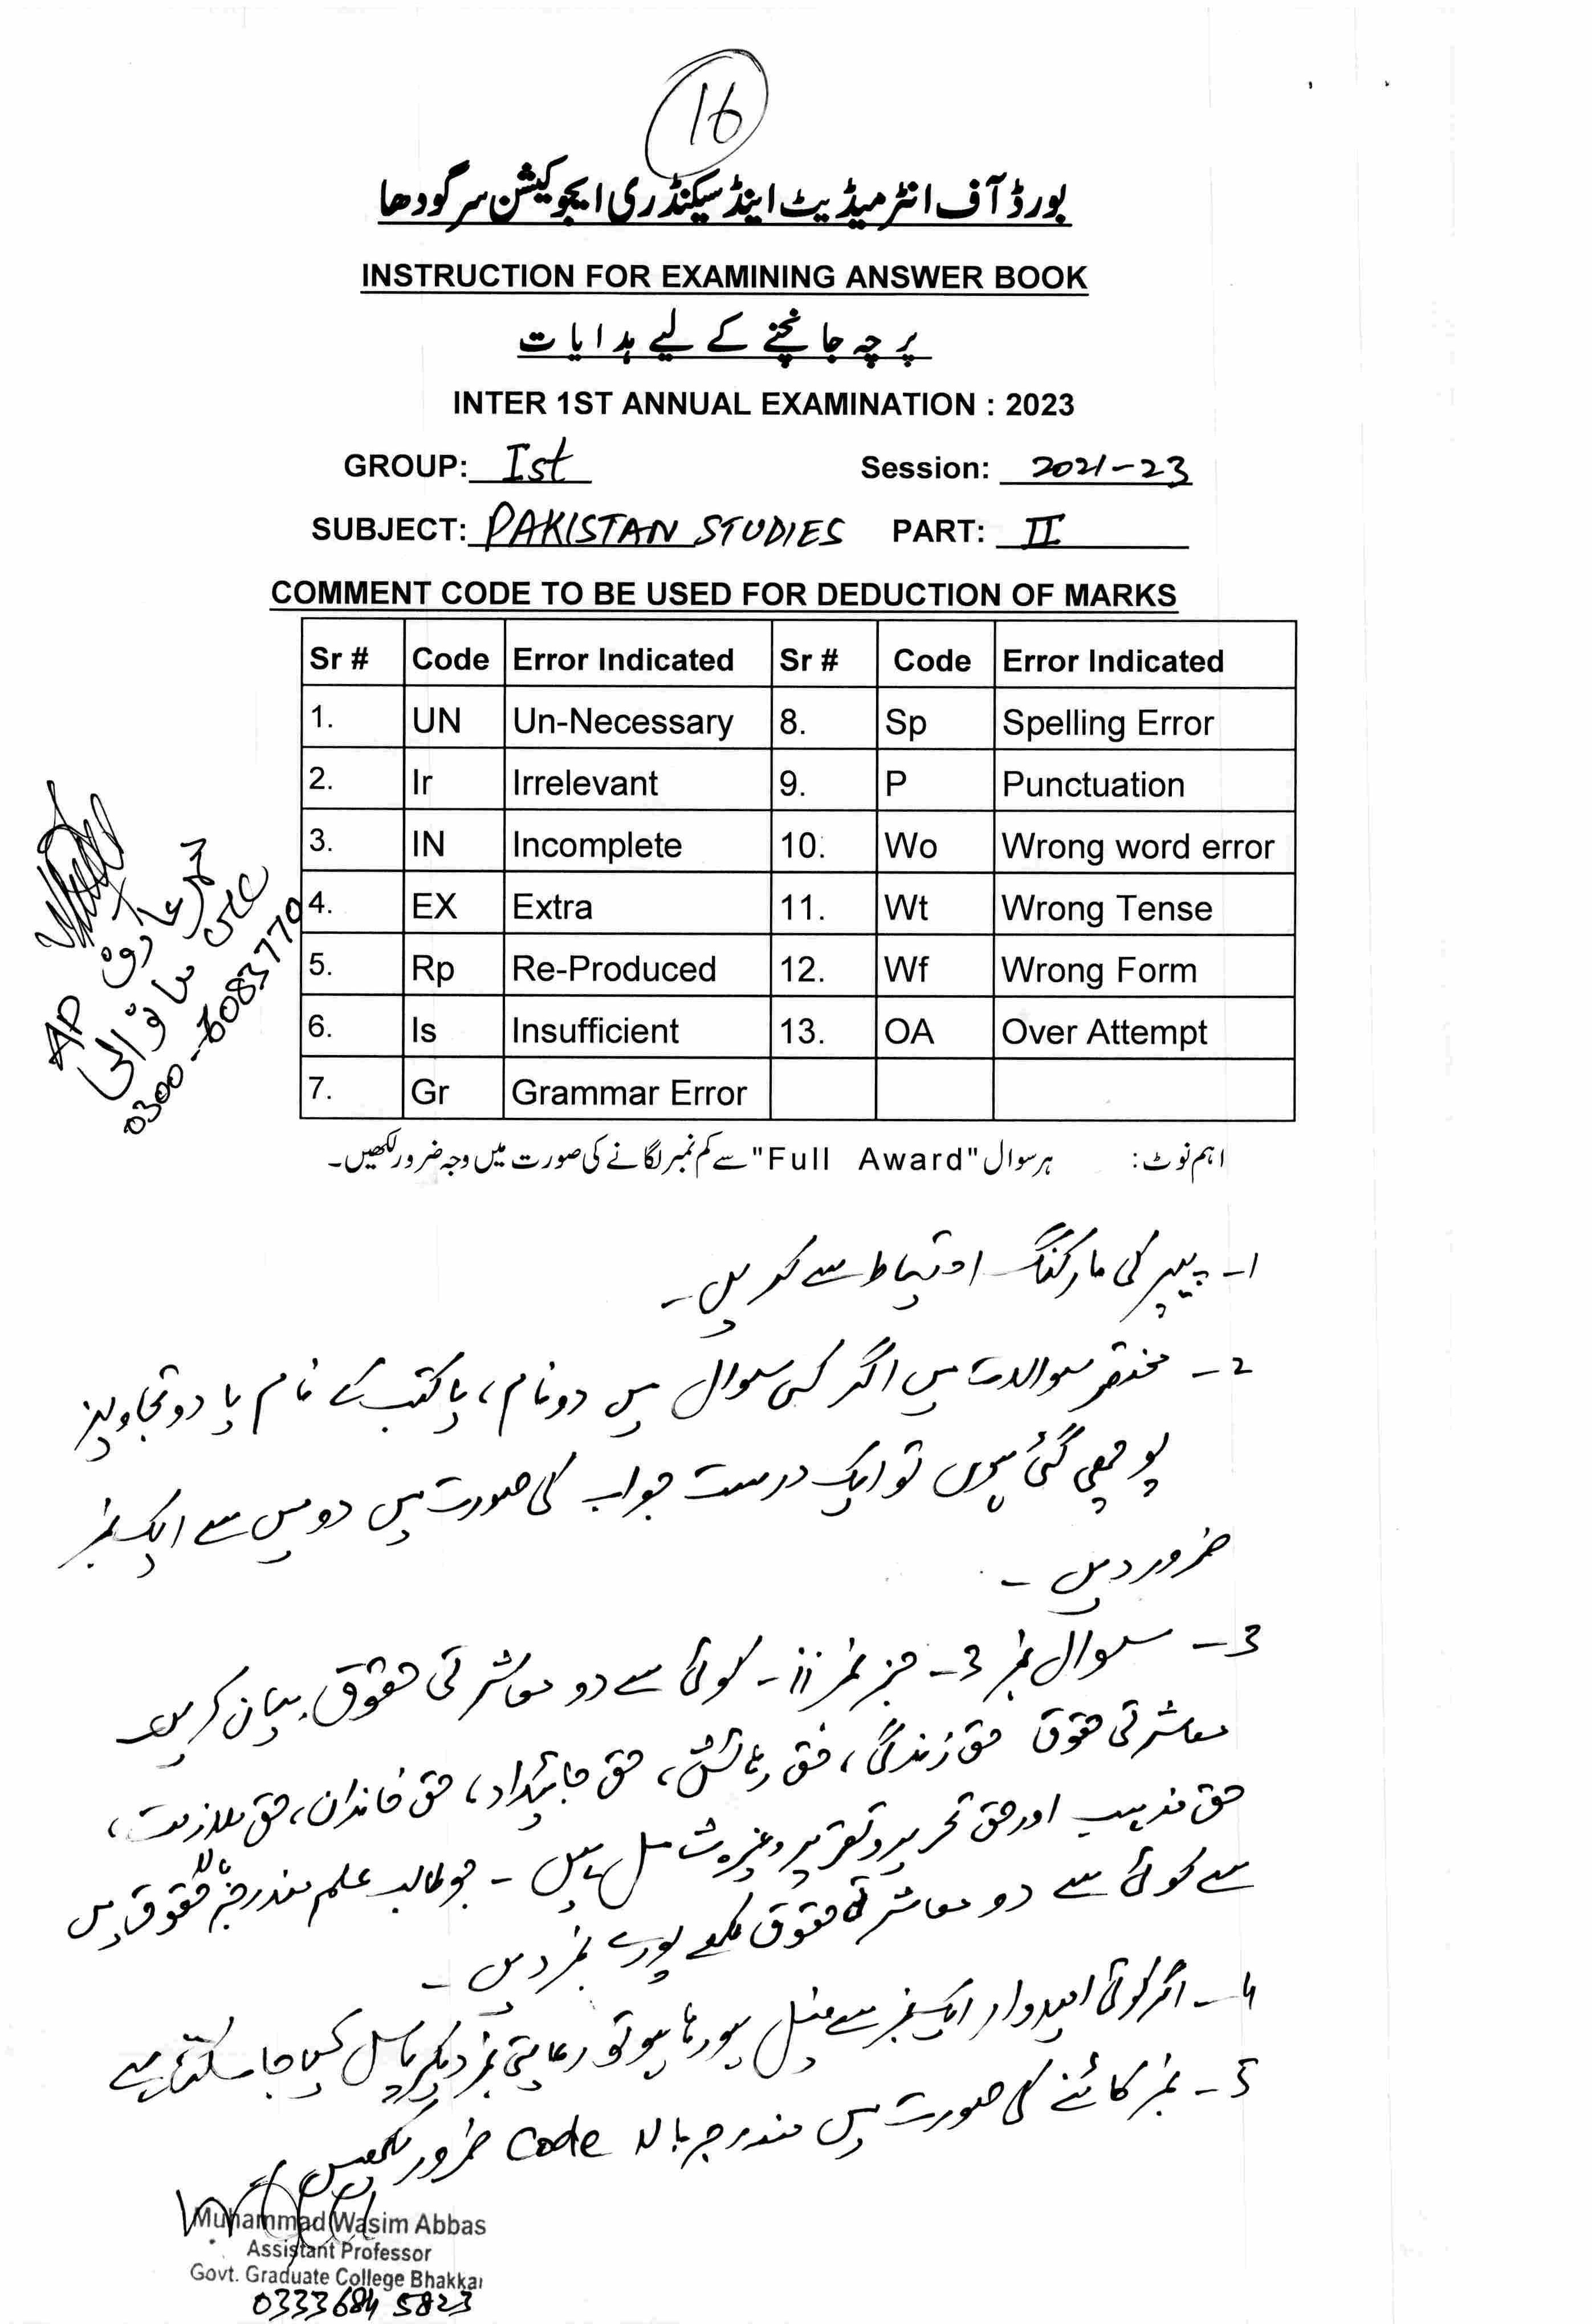 16
بورڈ آف انٹرمیڈیٹ اینڈ سیکنڈری ایجوکیشن سرگودھا
INSTRUCTION FOR EXAMINING ANSWER BOOK
پرچہ جانچنے کے لیے ہدایات
INTER 1ST ANNUAL EXAMINATION : 2023
GROUP: Ist Session: 2021-23
SUBJECT: PAKISTAN STUDIES PART: II
COMMENT CODE TO BE USED FOR DEDUCTION OF MARKS
Sr # Code Error Indicated Sr # Code Error Indicated
1. UN Un-Necessary 8. Sp Spelling Error
2. Ir Irrelevant 9. P Punctuation
3. IN Incomplete 10. Wo Wrong word error
4. EX Extra 11. Wt Wrong Tense
5. Rp Re-Produced 12. Wf Wrong Form
6. Is Insufficient 13. OA Over Attempt
7. Gr Grammar Error
AP
میانوالی
0300-6083770
اہم نوٹ: ہر سوال "Full Award" سے کم نمبر لگانے کی صورت میں وجہ ضرور لکھیں۔
1۔ پیپر کی مارکنگ احتیاط سے کریں۔
2۔ مختصر سوالات میں اگر کسی سوال میں دو نام، یا کتب کے نام یا دو تجاویز
پوچھی گئی ہوں تو ایک درست جواب کی صورت میں دو میں سے ایک نمبر
ضرور دیں۔
3۔ سوال نمبر 3۔ جز نمبر ii۔ کوئی سے دو معاشرتی حقوق بیان کریں۔
معاشرتی حقوق حق زندگی، حق رہائش، حق جائیداد، حق خاندان، حق ملازمت،
حق مذہب اور حق تحریر و تقریر وغیرہ شامل ہیں۔ جو طالب علم مندرجہ بالا حقوق میں
سے کوئی سے دو معاشرتی حقوق لکھے پورے نمبر دیں۔
4۔ اگر کوئی امیدوار ایک نمبر سے فیل ہو رہا ہو تو رعایتی نمبر دیکر پاس کیا جا سکتا ہے
5۔ نمبر کاٹنے کی صورت میں مندرجہ بالا Code ضرور لکھیں
Muhammad Wasim Abbas
Assistant Professor
Govt. Graduate College Bhakkar
03336845823